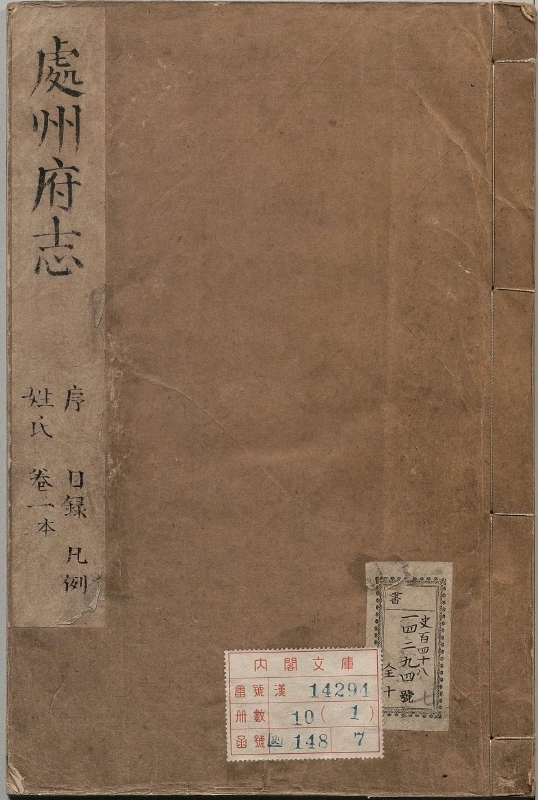 處州府志
序 目録 凡例
姓氏 卷一本
書
史百四十八
一四二九四號
全十
七
内閣文庫
番號 漢 14294
册數 10(1)
函號 史 148 7